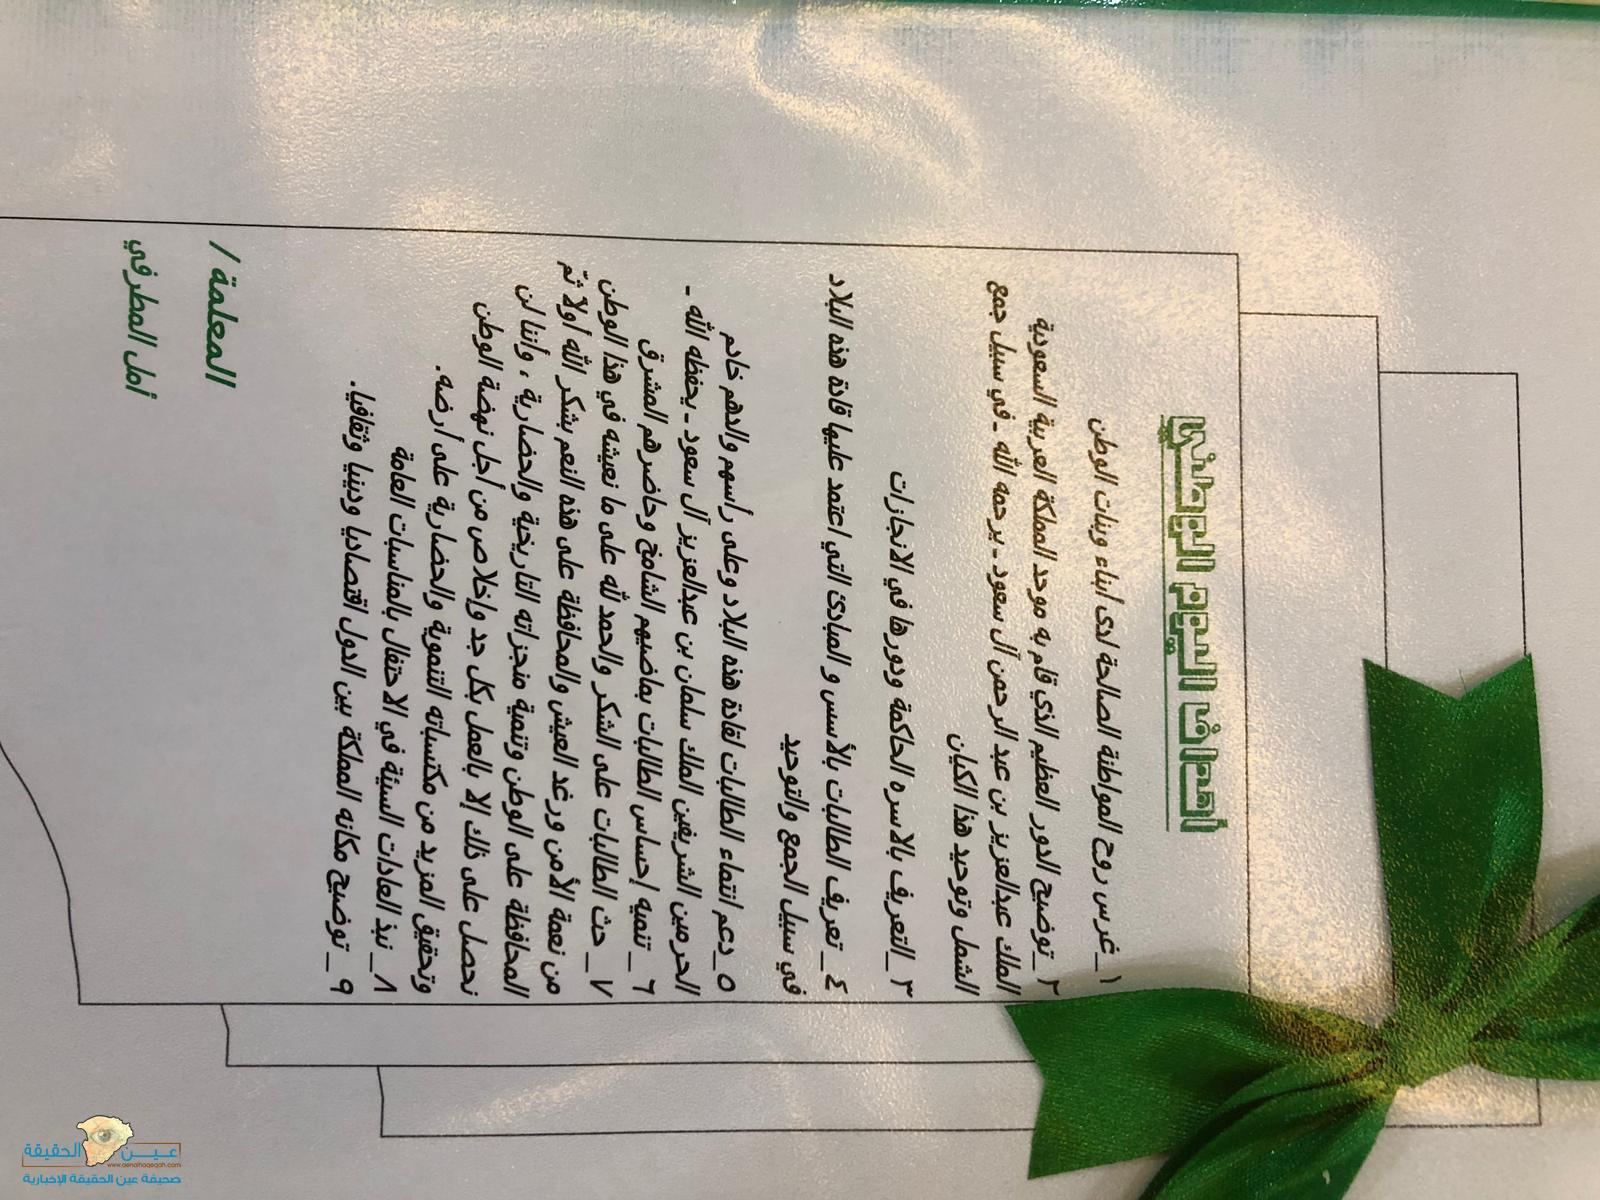 أهداف اليوم الوطني
١_غرس روح المواطنة الصالحة لدى أبناء وبنات الوطن
٢_توضيح الدور العظيم الذي قام به موحد المملكة العربية السعودية
الملك عبدالعزيز بن عبد الرحمن آل سعود ـ يرحمه الله ـ في سبيل جمع
الشمل وتوحيد هذا الكيان
٣_التعريف بالاسره الحاكمة ودورها في الانجازات
٤_ تعريف الطالبات بالأسس و المبادئ التي اعتمد عليها قادة هذه البلاد
في سبيل الجمع والتوحيد
٥_دعم انتماء الطالبات لقادة هذه البلاد وعلى رأسهم والدهم خادم
الحرمين الشريفين الملك سلمان بن عبدالعزيز آل سعود ـ يحفظه الله ـ
٦_ تنميه إحساس الطالبات بماضيهم الشامخ وحاضرهم المشرق
٧_ حث الطالبات على الشكر والحمد لله على ما نعيشه في هذا الوطن
من نعمة الأمن ورغد العيش والمحافظة على هذه النعم بشكر الله أولا ثم
المحافظة على الوطن وتنمية منجزاته التاريخية والحضارية ، وأننا لن
نحصل على ذلك إلا بالعمل بكل جد وإخلاص من أجل نهضة الوطن
وتحقيق المزيد من مكتسباته التنموية والحضارية على أرضه.
٨_ نبذ العادات السيئة في الاحتفال بالمناسبات العامة
٩_ توضيح مكانه المملكة بين الدول اقتصاديا ودينيا وثقافيا.
المعلمة /
أمل المطرفي
عين الحقيقة
www.aenalhaqeqah.com
صحيفة عين الحقيقة الإخبارية